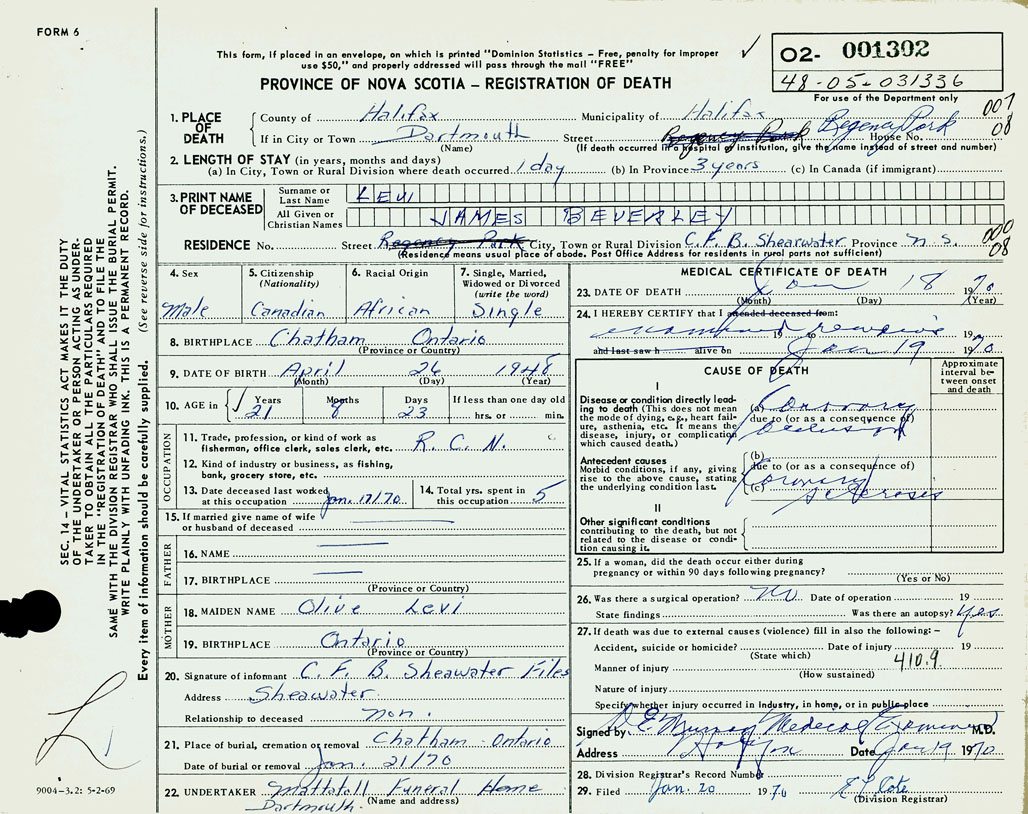 FORM 6
This form, if placed in an envelope, on which is printed "Dominion Statistics – Free, penalty for improper
use $50," and properly addressed will pass through the mail "FREE"
PROVINCE OF NOVA SCOTIA – REGISTRATION OF DEATH
02- 001302
48-05-031336
For use of the Department only
007
08
1. PLACE OF DEATH
County of Halifax Municipality of Halifax
If in City or Town Dartmouth Street Regency Park Regency Park House No.
(Name) (If death occurred in a hospital or institution, give the name instead of street and number)
2. LENGTH OF STAY (in years, months and days)
(a) In City, Town or Rural Division where death occurred 1 day (b) In Province 3 years (c) In Canada (if immigrant)
3. PRINT NAME OF DECEASED
Surname or Last Name LEVI
All Given or Christian Names JAMES BEVERLEY
000
08
RESIDENCE No. Street Regency Park City, Town or Rural Division C.F.B. Shearwater Province N.S.
(Residence means usual place of abode. Post Office Address for residents in rural parts not sufficient)
4. Sex
Male
5. Citizenship
(Nationality)
Canadian
6. Racial Origin
African
7. Single, Married,
Widowed or Divorced
(write the word)
Single
8. BIRTHPLACE Chatham Ontario
(Province or Country)
9. DATE OF BIRTH April 26 1948
(Month) (Day) (Year)
10. AGE in Years Months Days If less than one day old
21 8 23 hrs. or min.
OCCUPATION
11. Trade, profession, or kind of work as
fisherman, office clerk, sales clerk, etc. R.C.N.
12. Kind of industry or business, as fishing,
bank, grocery store, etc.
13. Date deceased last worked
at this occupation Jan. 17/70
14. Total yrs. spent in
this occupation 5
15. If married give name of wife
or husband of deceased
FATHER
16. NAME
17. BIRTHPLACE
(Province or Country)
MOTHER
18. MAIDEN NAME Olive Levi
19. BIRTHPLACE Ontario
(Province or Country)
20. Signature of informant C.F.B. Sheawater Files
Address Sheawater
Relationship to deceased non.
21. Place of burial, cremation or removal Chatham - Ontario
Date of burial or removal Jan. 21/70
22. UNDERTAKER Mattatall Funeral Home
(Name and address)
Dartmouth.
MEDICAL CERTIFICATE OF DEATH
23. DATE OF DEATH Jan 18 1970
(Month) (Day) (Year)
24. I HEREBY CERTIFY that I attended deceased from:
examined remains 19 to 19
and last saw h alive on Jan 19 1970
CAUSE OF DEATH
Approximate
interval be-
tween onset
and death
I
Disease or condition directly lead-
ing to death (This does not mean
the mode of dying, e.g., heart fail-
ure, asthenia, etc. It means the
disease, injury, or complication
which caused death.)
(a) Coronary
due to (or as a consequence of)
occlusion
Antecedent causes
Morbid conditions, if any, giving
rise to the above cause, stating
the underlying condition last.
(b)
due to (or as a consequence of)
(c) Coronary
sclerosis
II
Other significant conditions
contributing to the death, but not
related to the disease or condi-
tion causing it.
25. If a woman, did the death occur either during
pregnancy or within 90 days following pregnancy?
(Yes or No)
26. Was there a surgical operation? No Date of operation 19
State findings Was there an autopsy? Yes
27. If death was due to external causes (violence) fill in also the following: –
Accident, suicide or homicide? Date of injury 19
(State which)
410.9
Manner of injury
(How sustained)
Nature of injury
Specify whether injury occurred in Industry, in home, or in public place
Signed by D.E. Murray Medical Examiner M.D.
Address Halifax Date Jan 19 1970
28. Division Registrar's Record Number
29. Filed Jan. 20 1970
(Division Registrar)
SEC. 14 – VITAL STATISTICS ACT MAKES IT THE DUTY
OF THE UNDERTAKER OR PERSON ACTING AS UNDER-
TAKER TO OBTAIN ALL THE PARTICULARS REQUIRED
IN THE "REGISTRATION OF DEATH" AND TO FILE THE
SAME WITH THE DIVISION REGISTRAR WHO SHALL ISSUE THE BURIAL PERMIT.
WRITE PLAINLY WITH UNFADING INK. THIS IS A PERMANENT RECORD.
Every item of information should be carefully supplied. (See reverse side for instructions.)
9004-3.2: 5-2-69